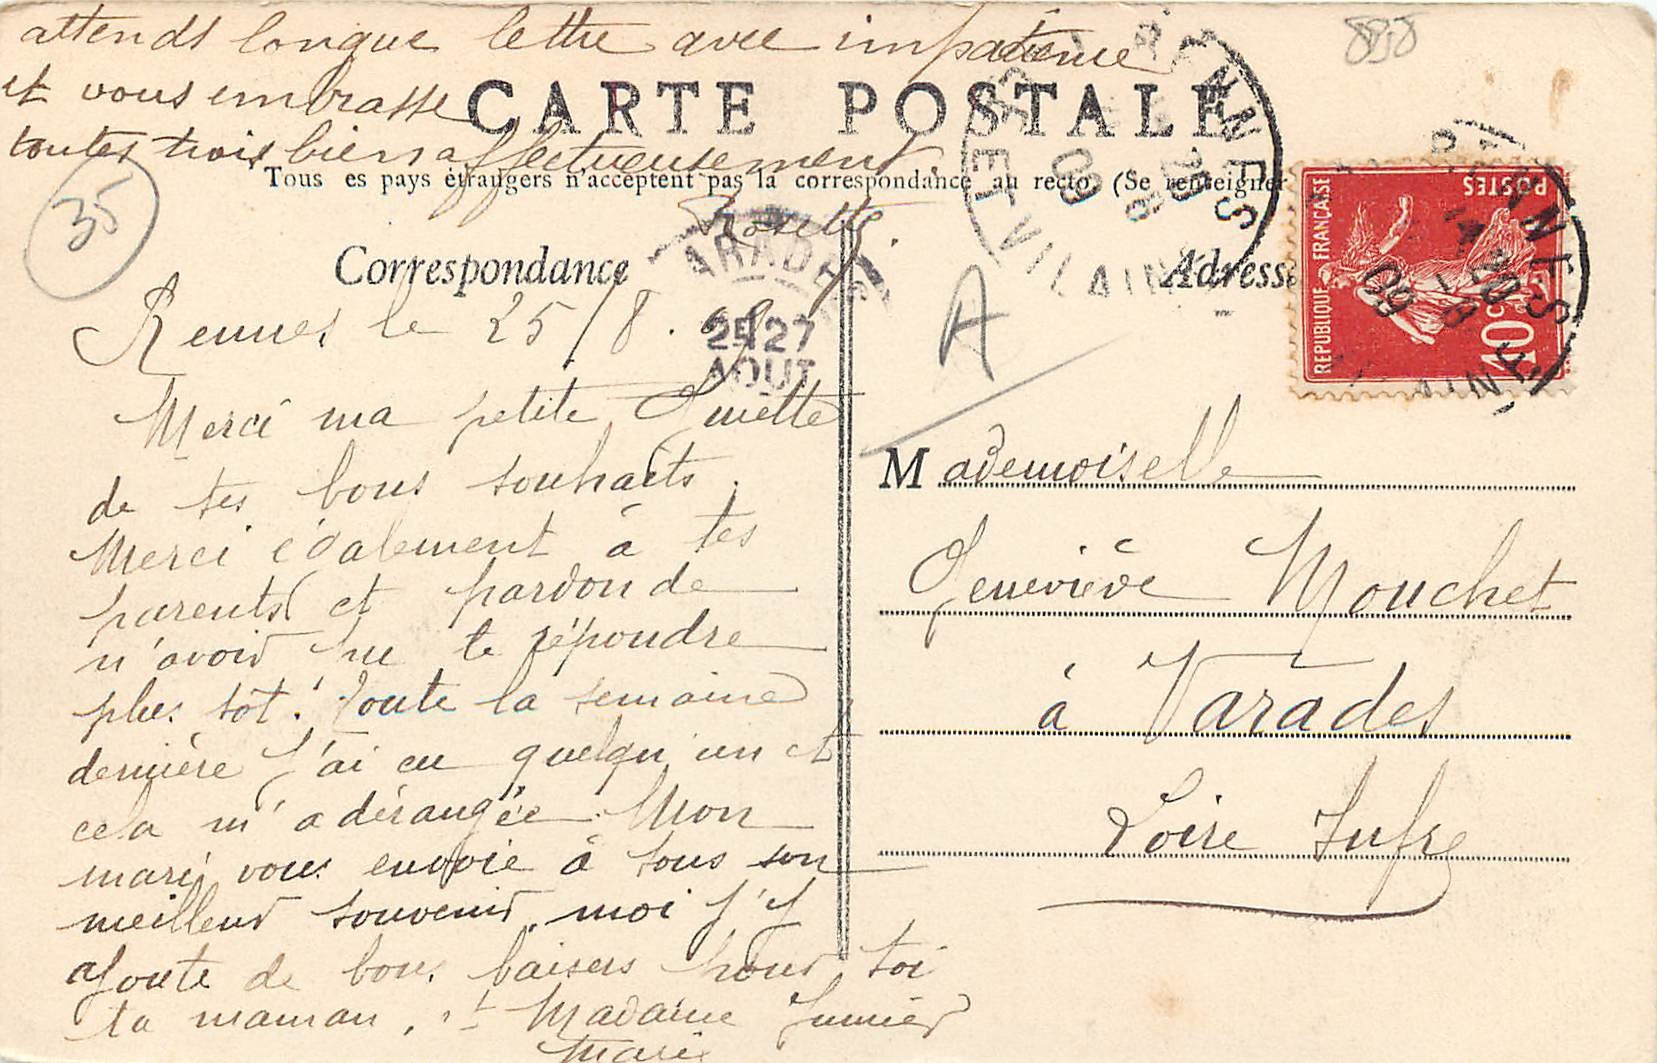 attends longue lettre avec impatience
et vous embrasse
toutes trois bien affectueusement.
888
CARTE POSTALE
Tous es pays étrangers n'acceptent pas la correspondance au recto (Se renseigner
35
Correspondance
Adresse
A
RENNES
ET VILAINE
09
RÉPUBLIQUE FRANÇAISE
POSTES
10 c
VARADES
27
AOUT
Rennes le 25/8.
Merci ma petite
de tes bons souhaits.
Merci également à tes
parents et pardon de
n'avoir pu te répondre
plus tôt. Toute la semaine
dernière j'ai eu quelqu'un et
cela m'a dérangée. Mon
mari vous envoie à tous son
meilleur souvenir, moi j'y
ajoute de bons baisers pour toi
ta maman, et Madame
Marie
Mademoiselle
Geneviève Mouchet
à Varades
Loire Infre